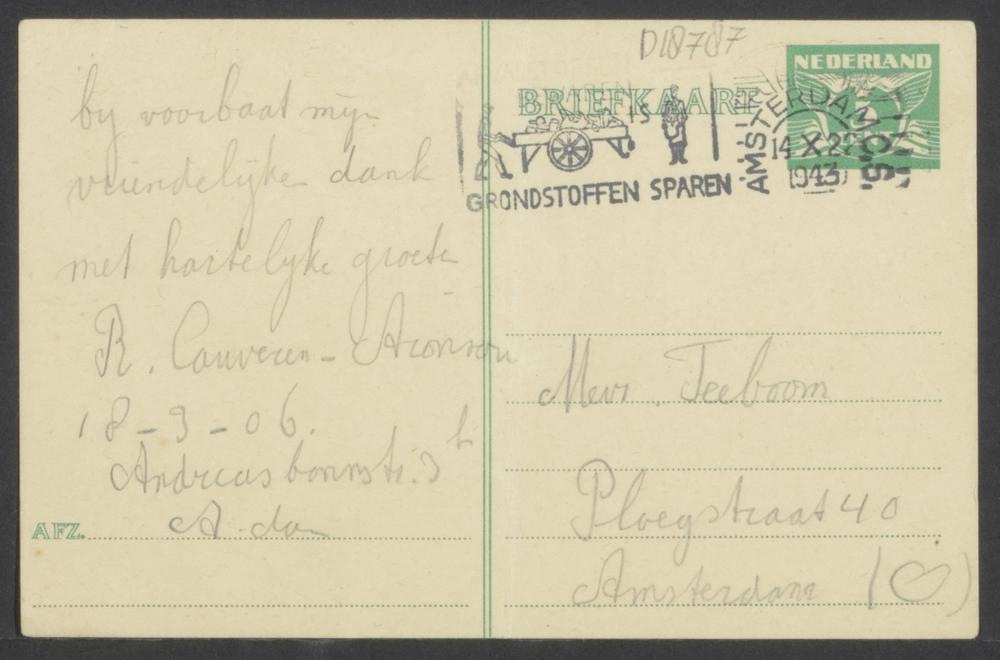 D18787
NEDERLAND
BRIEFKAART
IS
GRONDSTOFFEN SPAREN
AMSTERDAM C.S.
14 X 22
1943
by voorbaat mijn
vriendelijke dank
met hartelyke groete
R. Couveren - Aronson
18-9-06.
Andreas bonnstr. 3 h
A-dam
AFZ.
Mevr. Teeboom
Ploegstraat 40
Amsterdam (O)